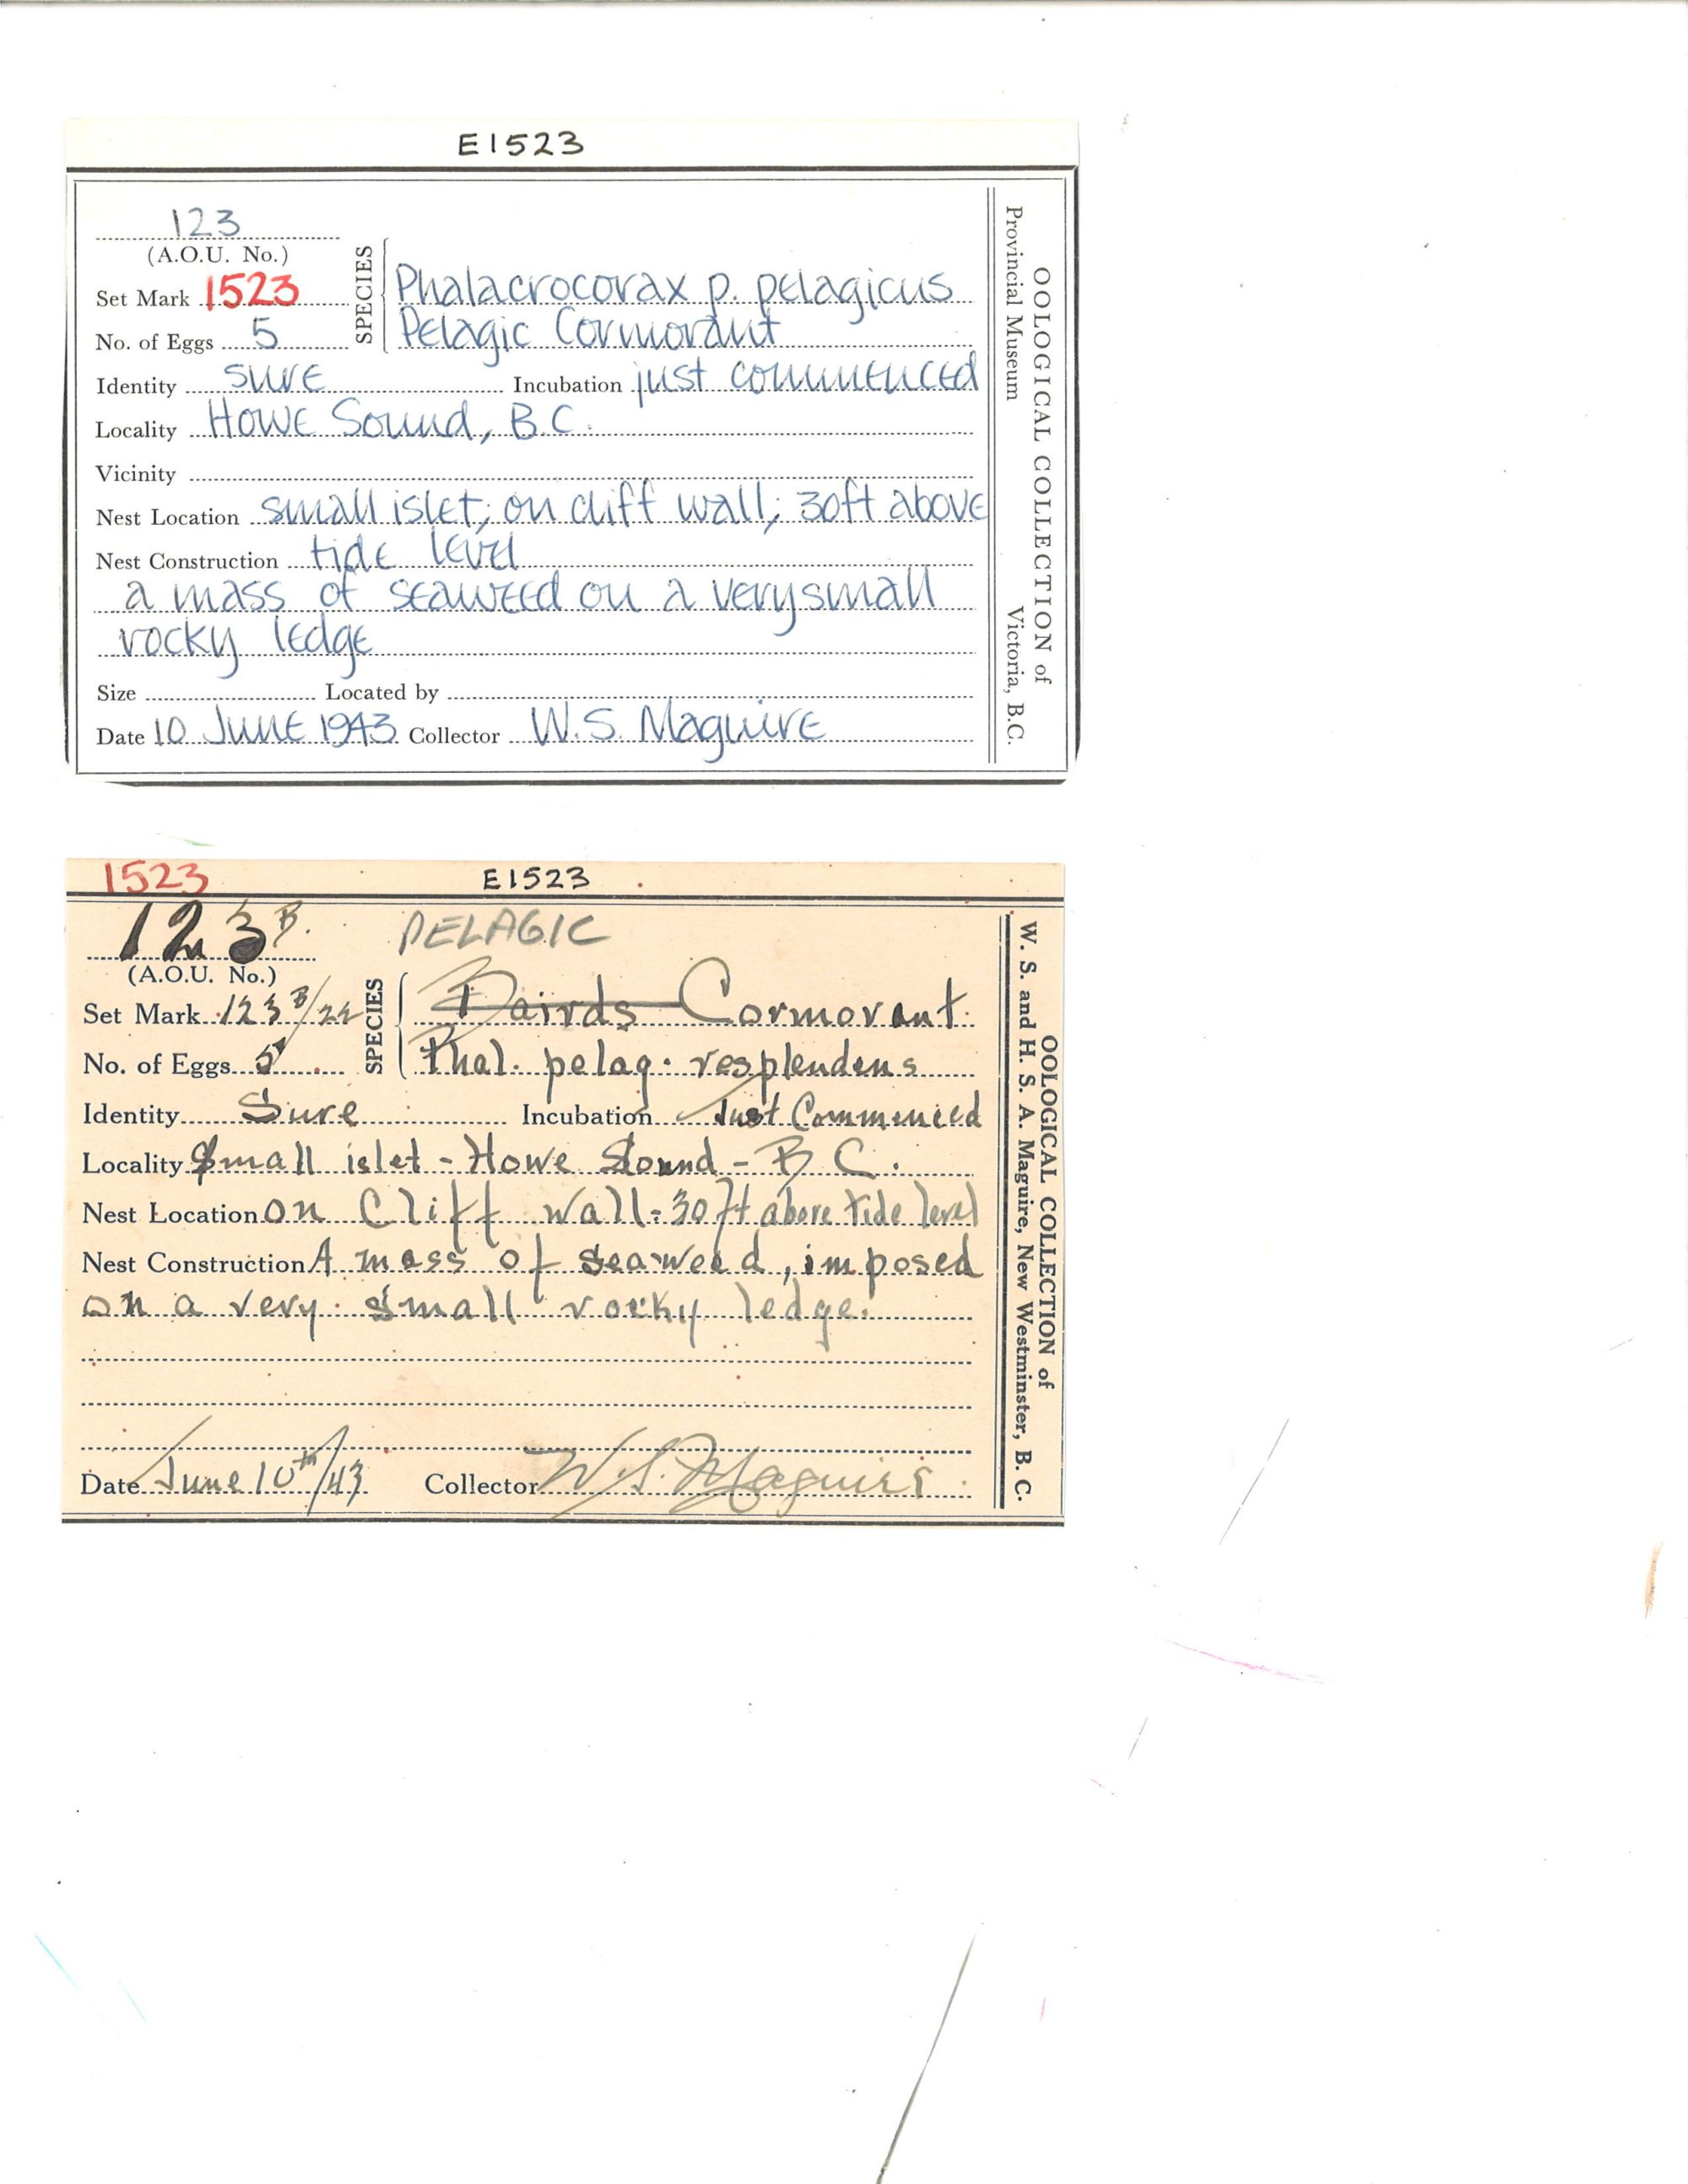 E1523
123
(A.O.U. No.)
Set Mark 1523
No. of Eggs 5
SPECIES
Phalacrocorax p. pelagicus
Pelagic Cormorant
Identity sure Incubation just commenced
Locality Howe Sound, B.C.
Vicinity
Nest Location small islet; on cliff wall; 30ft above
Nest Construction tide level
a mass of seaweed on a very small
rocky ledge
Size Located by
Date 10 June 1943 Collector W.S. Maguire
OOLOGICAL COLLECTION of
Provincial Museum Victoria, B.C.
1523 E1523
123 B. PELAGIC
(A.O.U. No.)
Set Mark 123 B/22
No. of Eggs 5
SPECIES
Bairds Cormorant.
Phal. pelag. resplendens
Identity Sure Incubation Just Commenced
Locality Small islet - Howe Sound - B C.
Nest Location on Cliff wall - 30 ft above tide level
Nest Construction A mass of seaweed, imposed
on a very small rocky ledge.
Date June 10th/43 Collector W. S. Maguire
OOLOGICAL COLLECTION of
W. S. and H. S. A. Maguire, New Westminster, B. C.